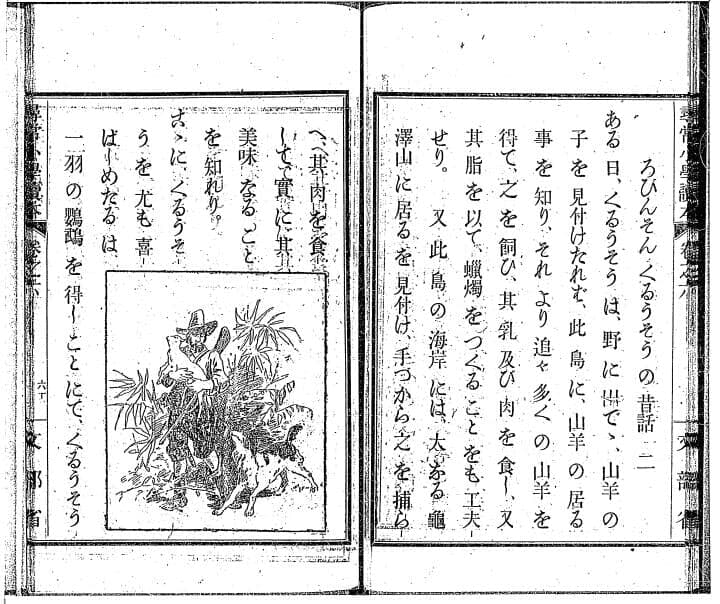 尋常小學讀本
文部省
ろびんそん、くるうそうの昔話 二
ある日、くるうそうは、野に出でゝ、山羊の
子を見付けたれば、此島に、山羊の居る
事を知り、それより追々多くの山羊を
得て、之を飼ひ、其乳及び肉を食し、又
其脂を以て、蠟燭をつくることをも工夫
せり。 又此島の海岸には、大なる龜
澤山に居るを見付け、手づから之を捕ら
へ、其肉を食
して、實に其
美味なること
を知れり。
こゝに、くるうそ
うを尤も喜
ばしめたるは、
一羽の鸚鵡を得しことにて、くるうそう
尋常小學讀本
文部省